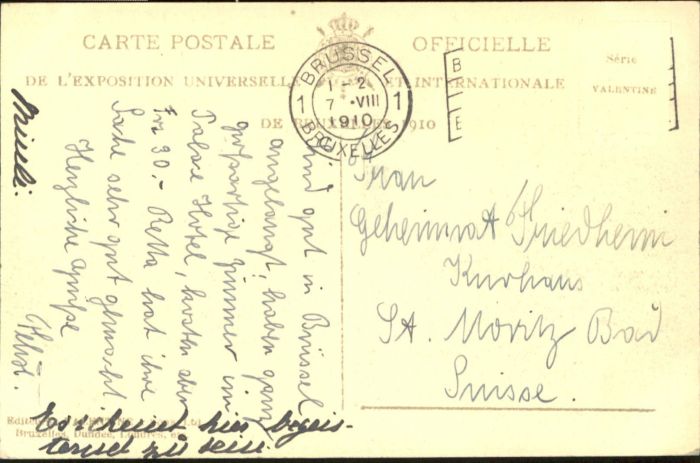 CARTE POSTALE OFFICIELLE
DE L'EXPOSITION UNIVERSELLE ET INTERNATIONALE
DE BRUXELLES 1910
Série
VALENTINE
BRUSSEL
1-2
1 7 VIII 1
1910
BRUXELLES
B
E
Frau
Geheimrat Friedheim
Kurhaus
St. Moritz Bad
Suisse.
Sind gut in Brüssel
angelangt; haben ganz
großartige Zimmer im
Palace Hotel, kosten aber
Frs 30.- Retta hat ihre
Sache sehr gut gemacht
Herzliche Grüße
Es scheint hier begeis-
ternd zu sein.
Bruxelles, Dundee, Londres, etc.